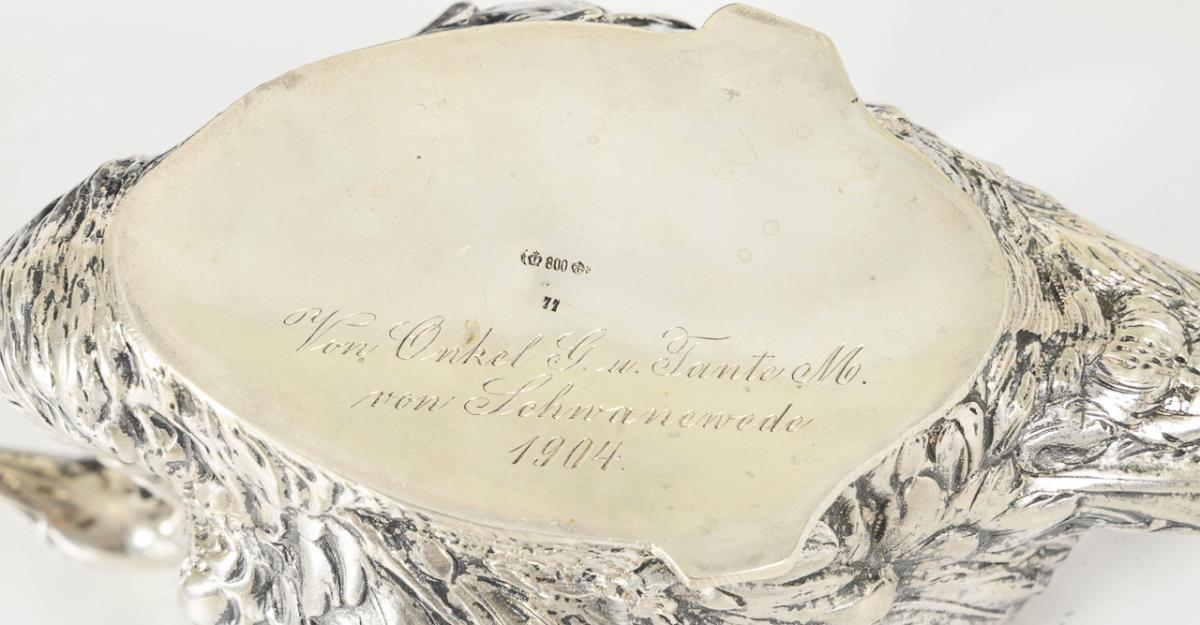 800
77
Von Onkel G. u. Tante M.
von Schwanewede
1904.